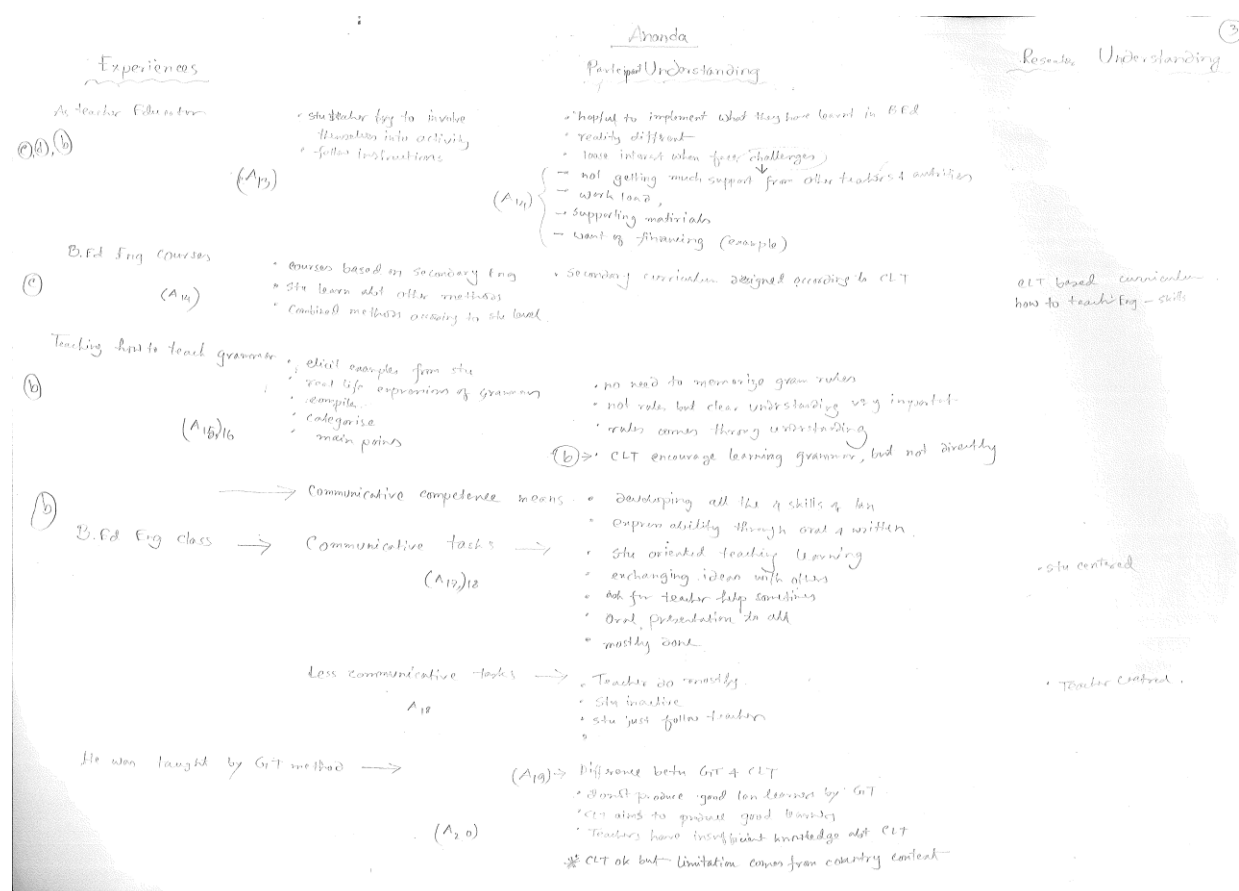 3
Ananda
Experiences
Participant Understanding
Understanding
As teacher Educator
• stu teacher try to involve
themselves into activity
• follow instructions
(c), (d), (b)
(A13)
• hopful to implement what they have learnt in B.Ed
• reality different
• loose interest when face challenges
(A14)
— not getting much support from other teachers &
— work load,
— supporting materials
— want of financing (example)
B.Ed Eng courses
(c)
(A14)
• courses based on secondary Eng
• stu learn abt other methods
• combined methods according to stu level.
• Secondary curriculum designed according to CLT
CLT based curriculum
how to teach Eng – skills
Teaching how to teach grammar
(b)
(A15)16
• elicit examples from stu
• real life expression of grammar
• compile
• categorise
• main points
• no need to memorize gram rules
• not rules but clear understanding very important
• rules comes throug understanding
(b) → • CLT encourage learning grammar, but not directly
(b)
→ Communicative competence means
• developing all the 4 skills of lan
• express ability through oral & written
B.Ed Eng class → Communicative tasks →
(A17)18
• stu oriented teaching learning
• exchanging ideas with others
• ask for teacher help sometimes
• oral presentation to all
• mostly done
• stu centered
Less communicative tasks →
A18
• Teacher do mostly
• stu inactive
• stu just follow teacher
•
• Teacher centred.
He was taught by GT method →
(A19) → Difference betn GT & CLT
• don't produce good lan learners by GT
• CLT aims to produce good learners
• Teachers have insufficient knowledge abt CLT
(A20)
* CLT ok but limitation comes from country context